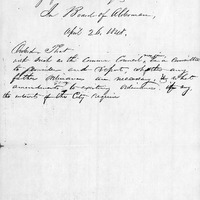 In Board of Aldermen,
April 26, 1848.
Ordered, That
such as the Common Council, a Committee
to consider and report, whether any
further Ordinances are necessary, or what
amendments to existing Ordinances, if any,
the interests of the City require